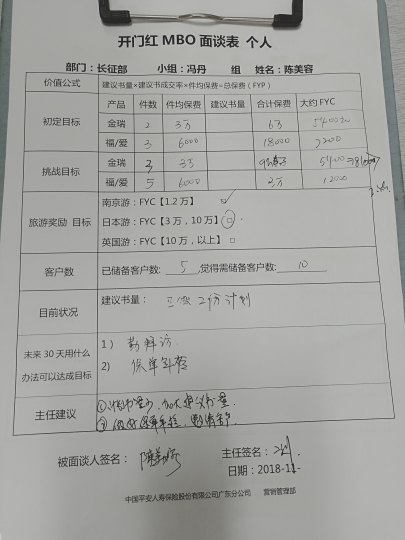 开门红 MBO 面谈表 个人
部门：长征部 小组：冯丹 组 姓名：陈美容
价值公式 建议书量×建议书成交率×件均保费=总保费（FYP）
产品 件数 件均保费 建议书量 合计保费 大约 FYC
初定目标
金瑞 2 3万 6万 5400
福/爱 3 6000 18000 7200
挑战目标
金瑞 3 3万 9万 5400
福/爱 5 6000 3万 12000
旅游奖励 目标
南京游：FYC【1.2 万】
日本游：FYC【3 万，10 万】□
英国游：FYC【10 万，以上】□
客户数 已储备客户数： 5 ,觉得需储备客户数： 10
目前状况 建议书量： 计划
未来 30 天用什么办法可以达成目标
1） 勤拜访
2） 保单年检
主任建议
① 加大建议书量
②
被面谈人签名： 主任签名：
日期：2018-11-
中国平安人寿保险股份有限公司广东分公司 营销管理部